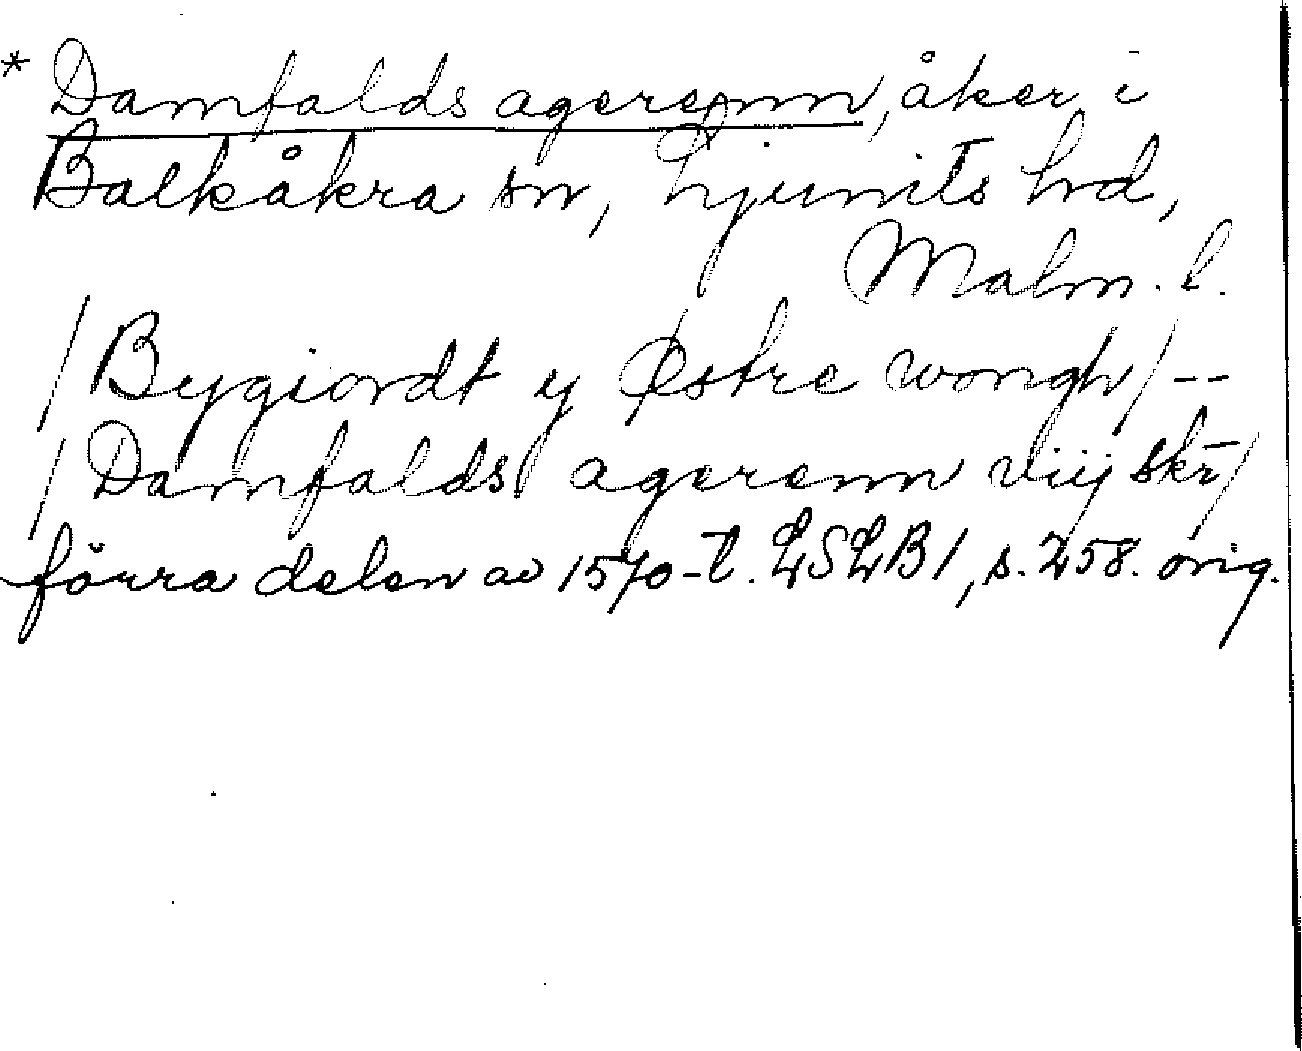 * Damfalds agerenn, åker i
Balkåkra sn, Ljunits hd,
Malm. l.
/ Bygiordt y Østre wongh / --
/ Damfalds agerenn viij skr /
förra delen av 1570-t. LSLB1, s. 258. orig.